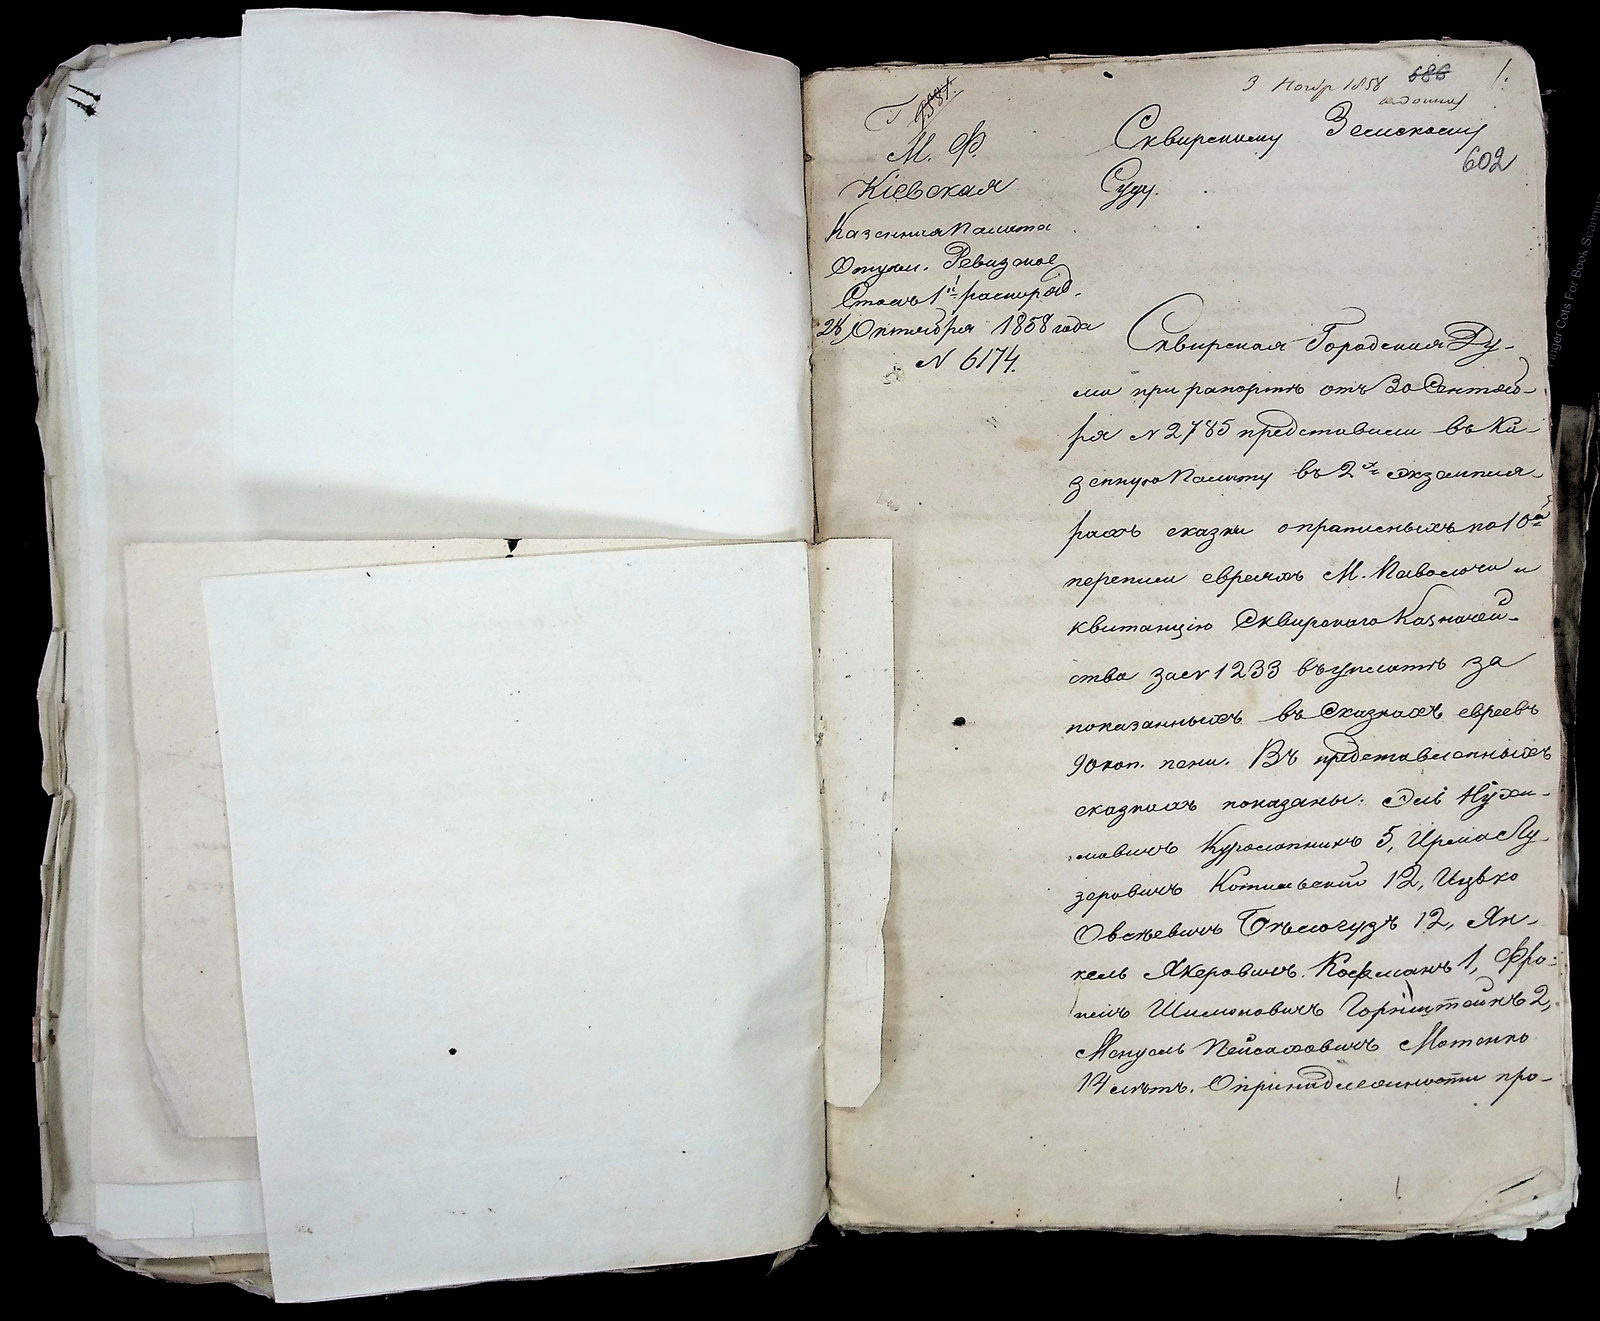 3 Ноябр 1858
686
1.
Сквирскому Земскому
602
Суду.
М. Ф.
Кіевская
Казенная Палата
Отдѣл. Ревизское
Столъ 1й
28 Октября 1858 года
N 6174.
Сквирская Городская Ду-
ма при рапортѣ отъ 30 Сентяб-
ря N 2785 представила въ Ка-
зенную Палату въ 2хъ экземпля-
рахъ сказки о прописныхъ по 10й
переписи евреяхъ М. Паволочи и
квитанцію Сквирскаго Казначей-
ства за N 1233 въ уплатѣ за
показанныхъ въ сказкахъ евреевъ
90 коп. пени. Въ представленныхъ
сказкахъ показаны: Эли Нухи-
мовичъ Куролапникъ 5, Ирма Лу-
зеровичъ Котельскій 12, Ицько
Овсѣевичъ Бѣлогузъ 12, Ян-
кель Якеровичъ Кофманъ 1, Фро-
имъ Шимоновичъ Горнштейнъ 2,
Мануель Пейсаховичъ Мотенко
14 лѣтъ. О принадлежности про-